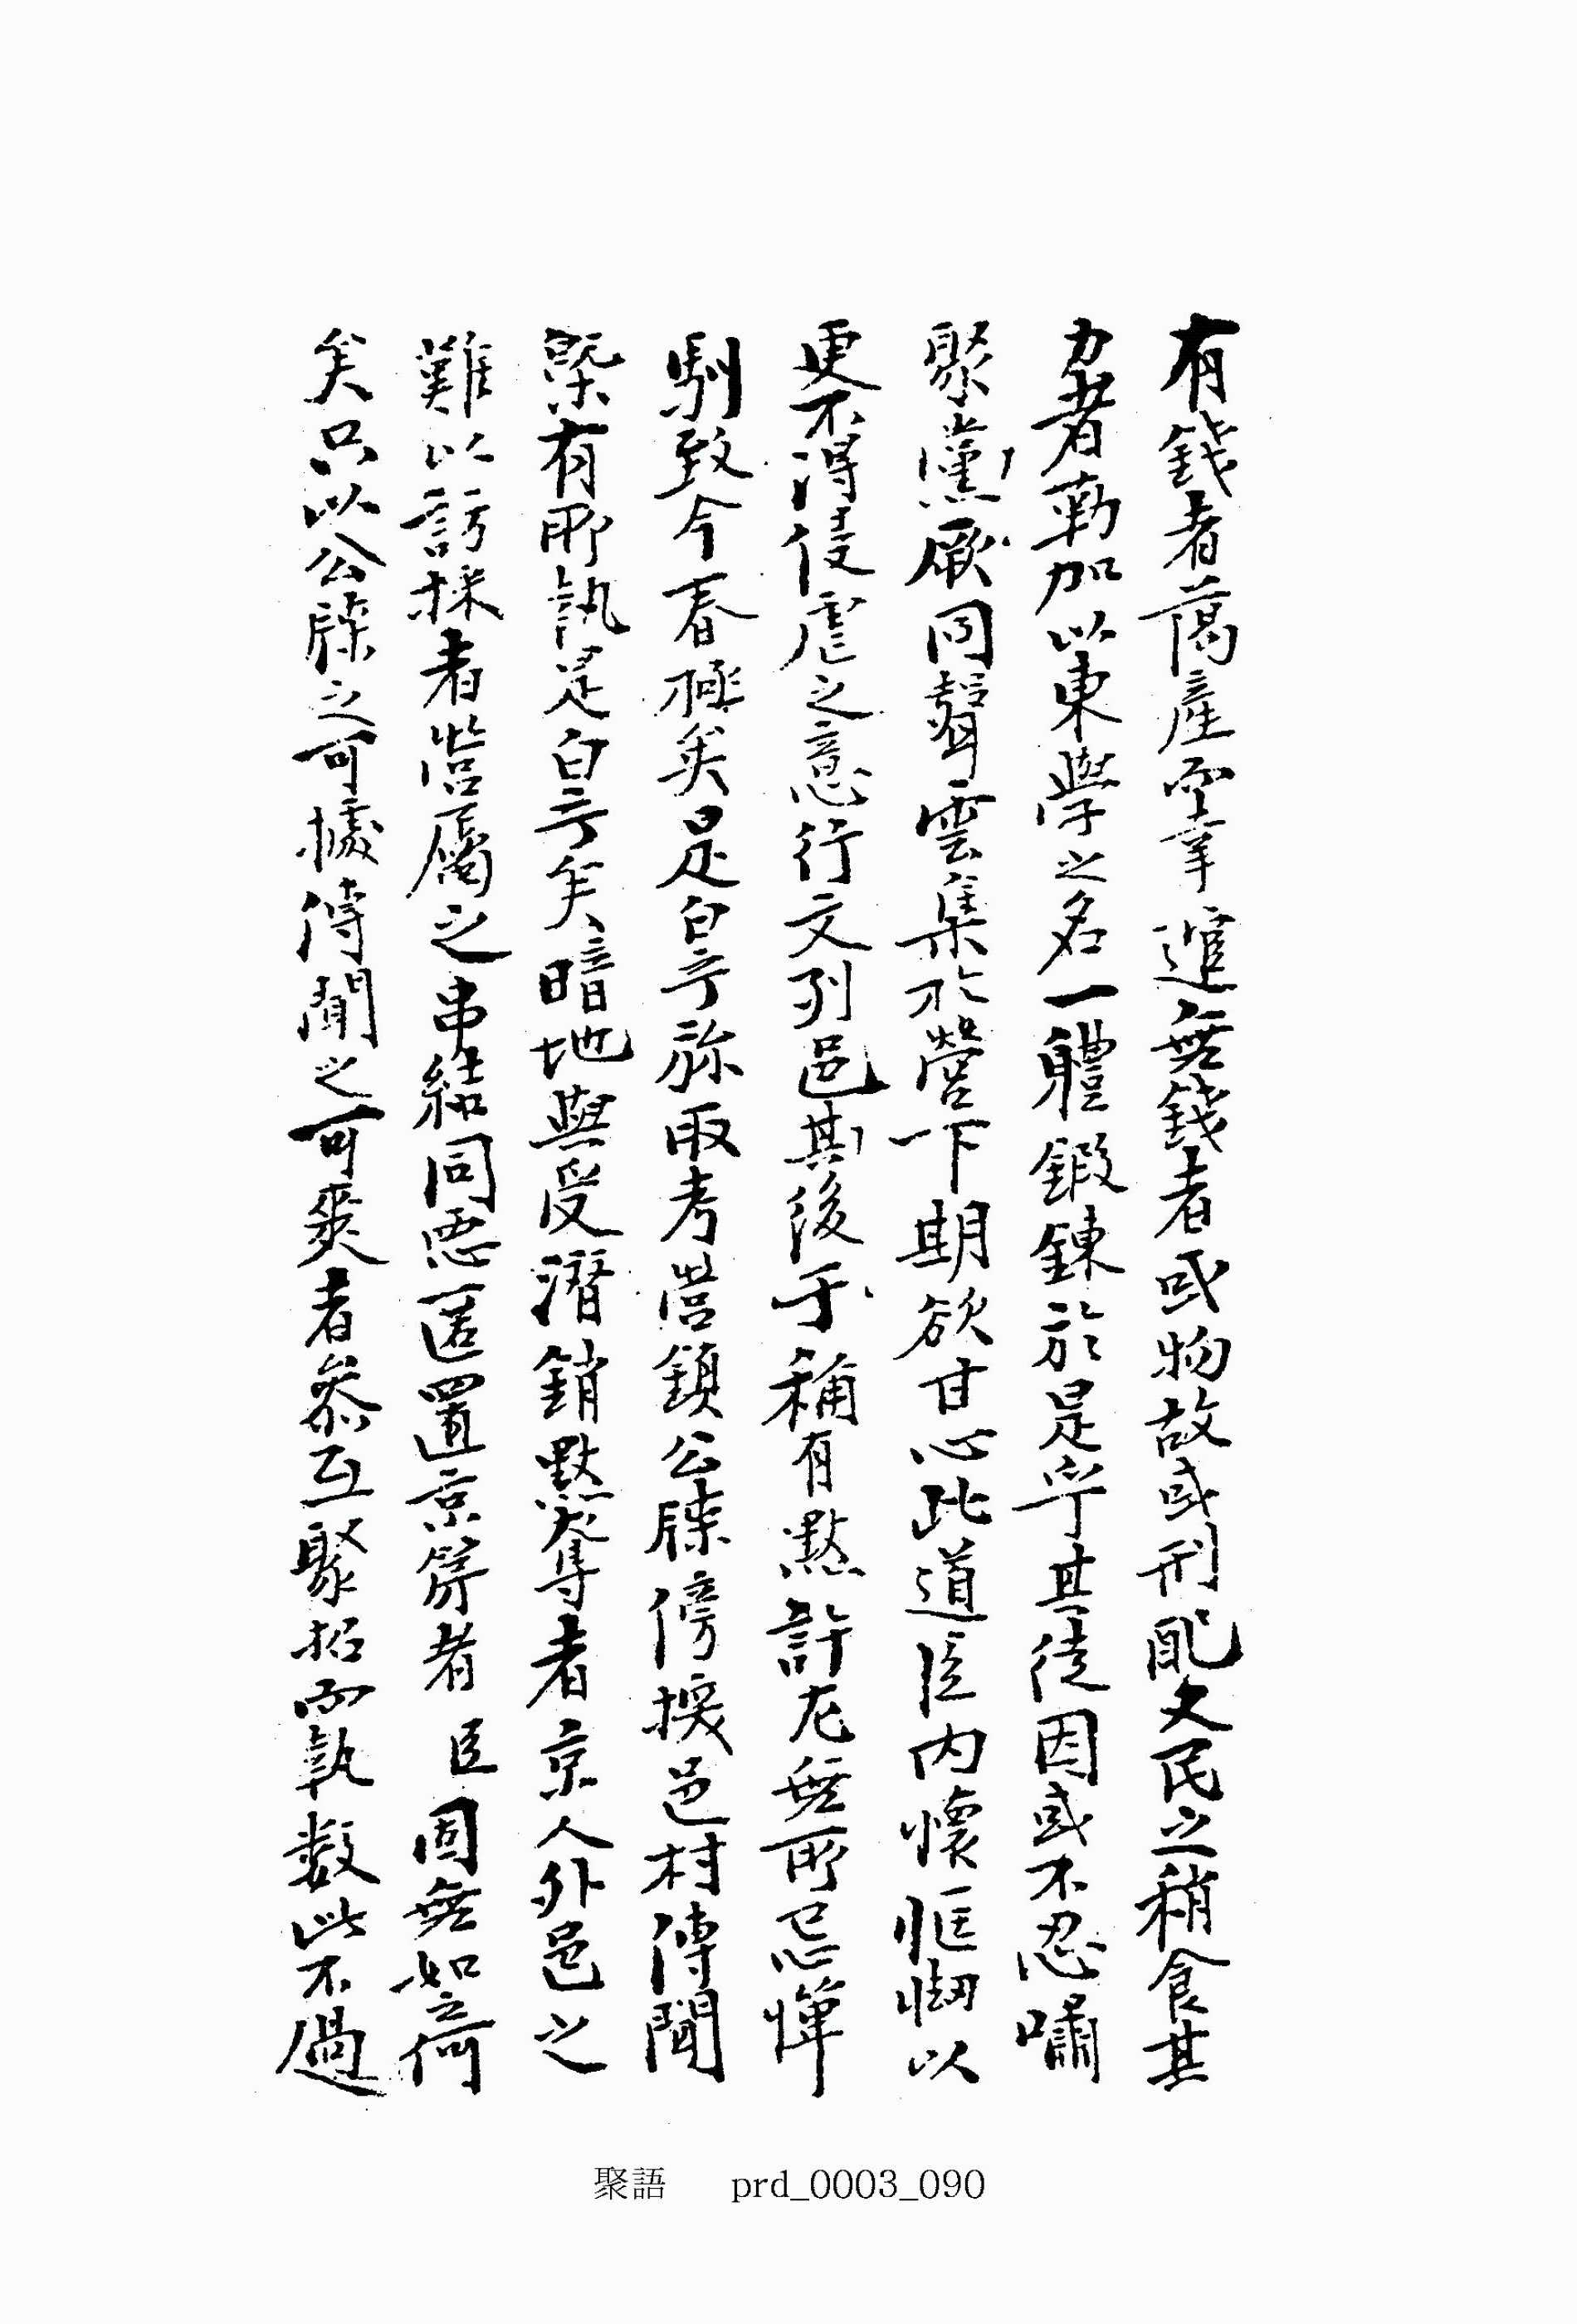 有錢者蕩産而幸逭無錢者或物故或刑配大民之稍食其
力者勒加以東學之名一軆鍛鍊於是乎其徒因或不忍嘯
聚黨厥同聲雲集於營下期欲甘心此道臣內懷恇㥘以
更不得侵虐之意行文列邑其後于稱有㸃許尤無所忌憚
馴致今春極矣是白乎旀取考營鎭公牒傍採邑村傳聞
槩有所執是白乎矣暗地與受潛銷㸃奪者京人外邑之
難以訪採者營屬之串結同惡匿置京第者臣固無如之何
矣只以公牒之可據傳聞之可爽者叅互聚招而執數此不過
聚語 prd_0003_090